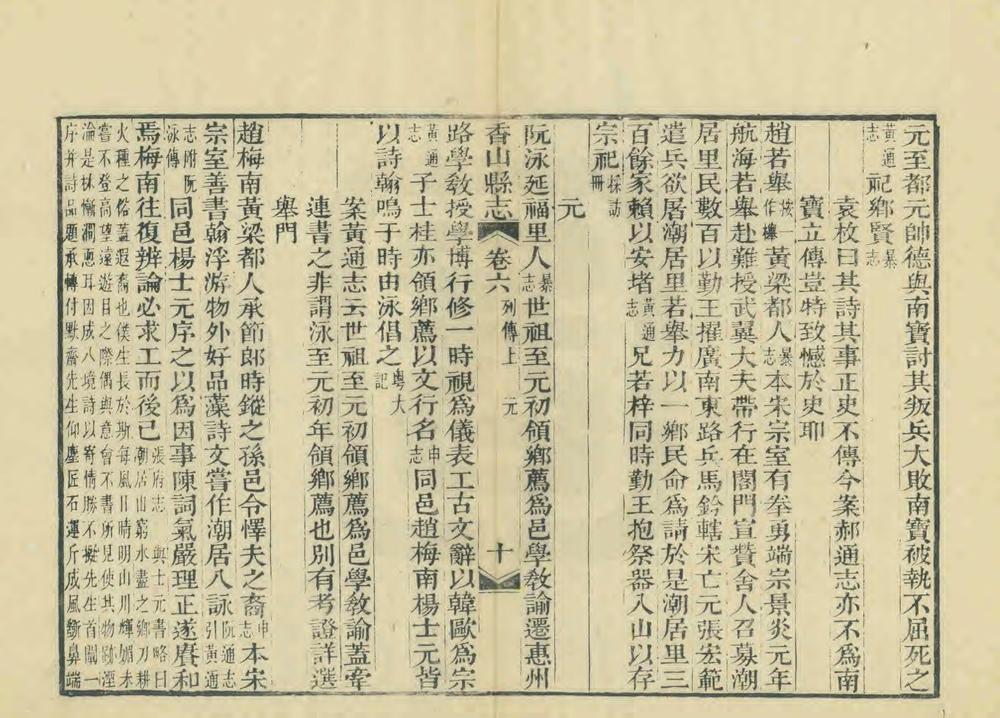 元至都元帥德與南寶討其叛兵大敗南寶被執不屈死之
黃通志祀鄉賢暴志
袁枚曰其詩其事正史不傳今案郝通志亦不爲南
寶立傳豈特致憾於史耶
趙若舉按一作櫸黃梁都人暴志本宋宗室有奉勇端宗景炎元年
航海若舉赴難授武翼大夫帶行在閤門宣贊舍人召募潮
居里民數百以勤王擢廣南東路兵馬鈐轄宋亡元張宏範
遣兵欲屠潮居里若舉力以一鄉民命爲請於是潮居里三
百餘家賴以安堵黃通志兄若梓同時勤王抱祭器入山以存
宗祀採訪冊
元
阮泳延福里人暴志世祖至元初領鄉薦爲邑學敎諭遷惠州
香山縣志 卷六 列傳上 元 十
路學敎授學博行修一時視爲儀表工古文辭以韓歐爲宗
黃通志子士桂亦領鄉薦以文行名申志同邑趙梅南楊士元皆
以詩翰鳴于時由泳倡之粵大記
案黃通志云世祖至元初領鄉薦爲邑學敎諭蓋牽
連書之非謂泳至元初年領鄉薦也別有考證詳選
舉門
趙梅南黃梁都人承節郎時鏦之孫邑令懌夫之裔申志本宋
宗室善書翰浮游物外好品藻詩文嘗作潮居八詠阮通志引黃通
志附阮泳傳同邑楊士元序之以爲因事陳詞氣嚴理正遂賡和
焉梅南往復辨論必求工而後已張府志 與士元書略曰潮居山窮水盡之鄉刀耕
火種之俗蓋遐裔也僕生長於斯每風日晴明山川輝媚未
嘗不登高望遠遊目之際偶與意會不書所見使其物跡湮
淪是林慚澗恧耳因成八境詩以寄情勝不擬先生首闡一
序并詩品題承轉付野齋先生仰塵匠石運斤成風斲鼻端